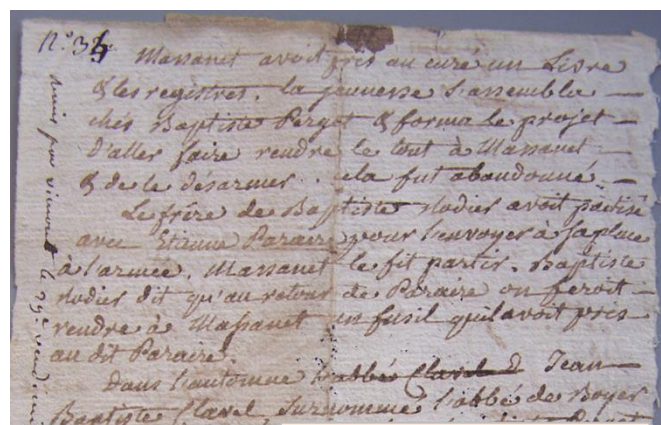 N.° 34
Massanet avoit pris au curé un Livre
& les registres. la jeunesse s'assembla
chés Baptiste Perget & forma le projet
d'aller faire rendre le tout à Massanet
& de le désarmer. cela fut abandonné.
Le frère de Baptiste Nodier avoit pactisé
avec Etienne Paraire pour l'envoyer à sa place
à l'armée. Massanet le fit partir. Baptiste
Nodier dit qu'au retour de Paraire on feroit
rendre à Massanet un fusil qu'il avoit pris
au dit Paraire.
Dans l'automne l'abbé Clavel d Jean
Baptiste Clavel surnommé l'abbé de Boyer
remis par vienot le 29e vendém